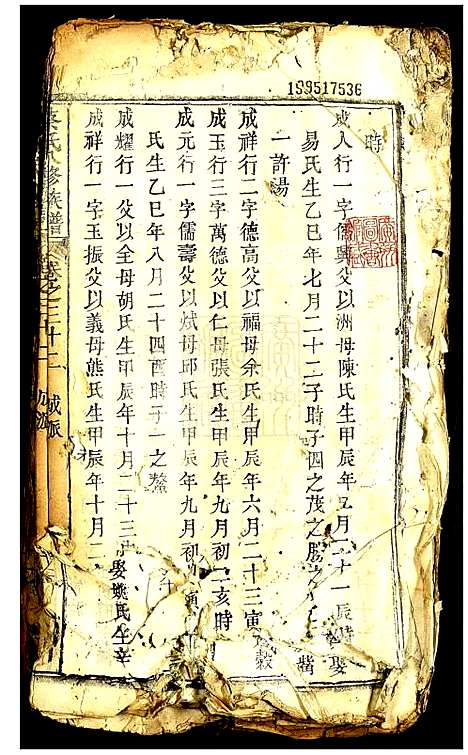 199517536
時
成人行一字儒興父以洲母陳氏生甲辰年五月二十一辰時娶
易氏生乙巳年七月二十二子時子四之茂之勝之
一許湯
成祥行二字德高父以福母余氏生甲辰年六月二十三寅
成玉行三字萬德父以仁母張氏生甲辰年九月初二亥時
成元行一字儒壽父以斌母邱氏生甲辰年九月初
氏生乙巳年八月二十四酉時子一之鰲
成耀行一父以全母胡氏生甲辰年十月二十三 娶姚氏生辛
成祥行一字玉振父以義母熊氏生甲辰年十月二
氏八修族譜 卷之三十二 成派